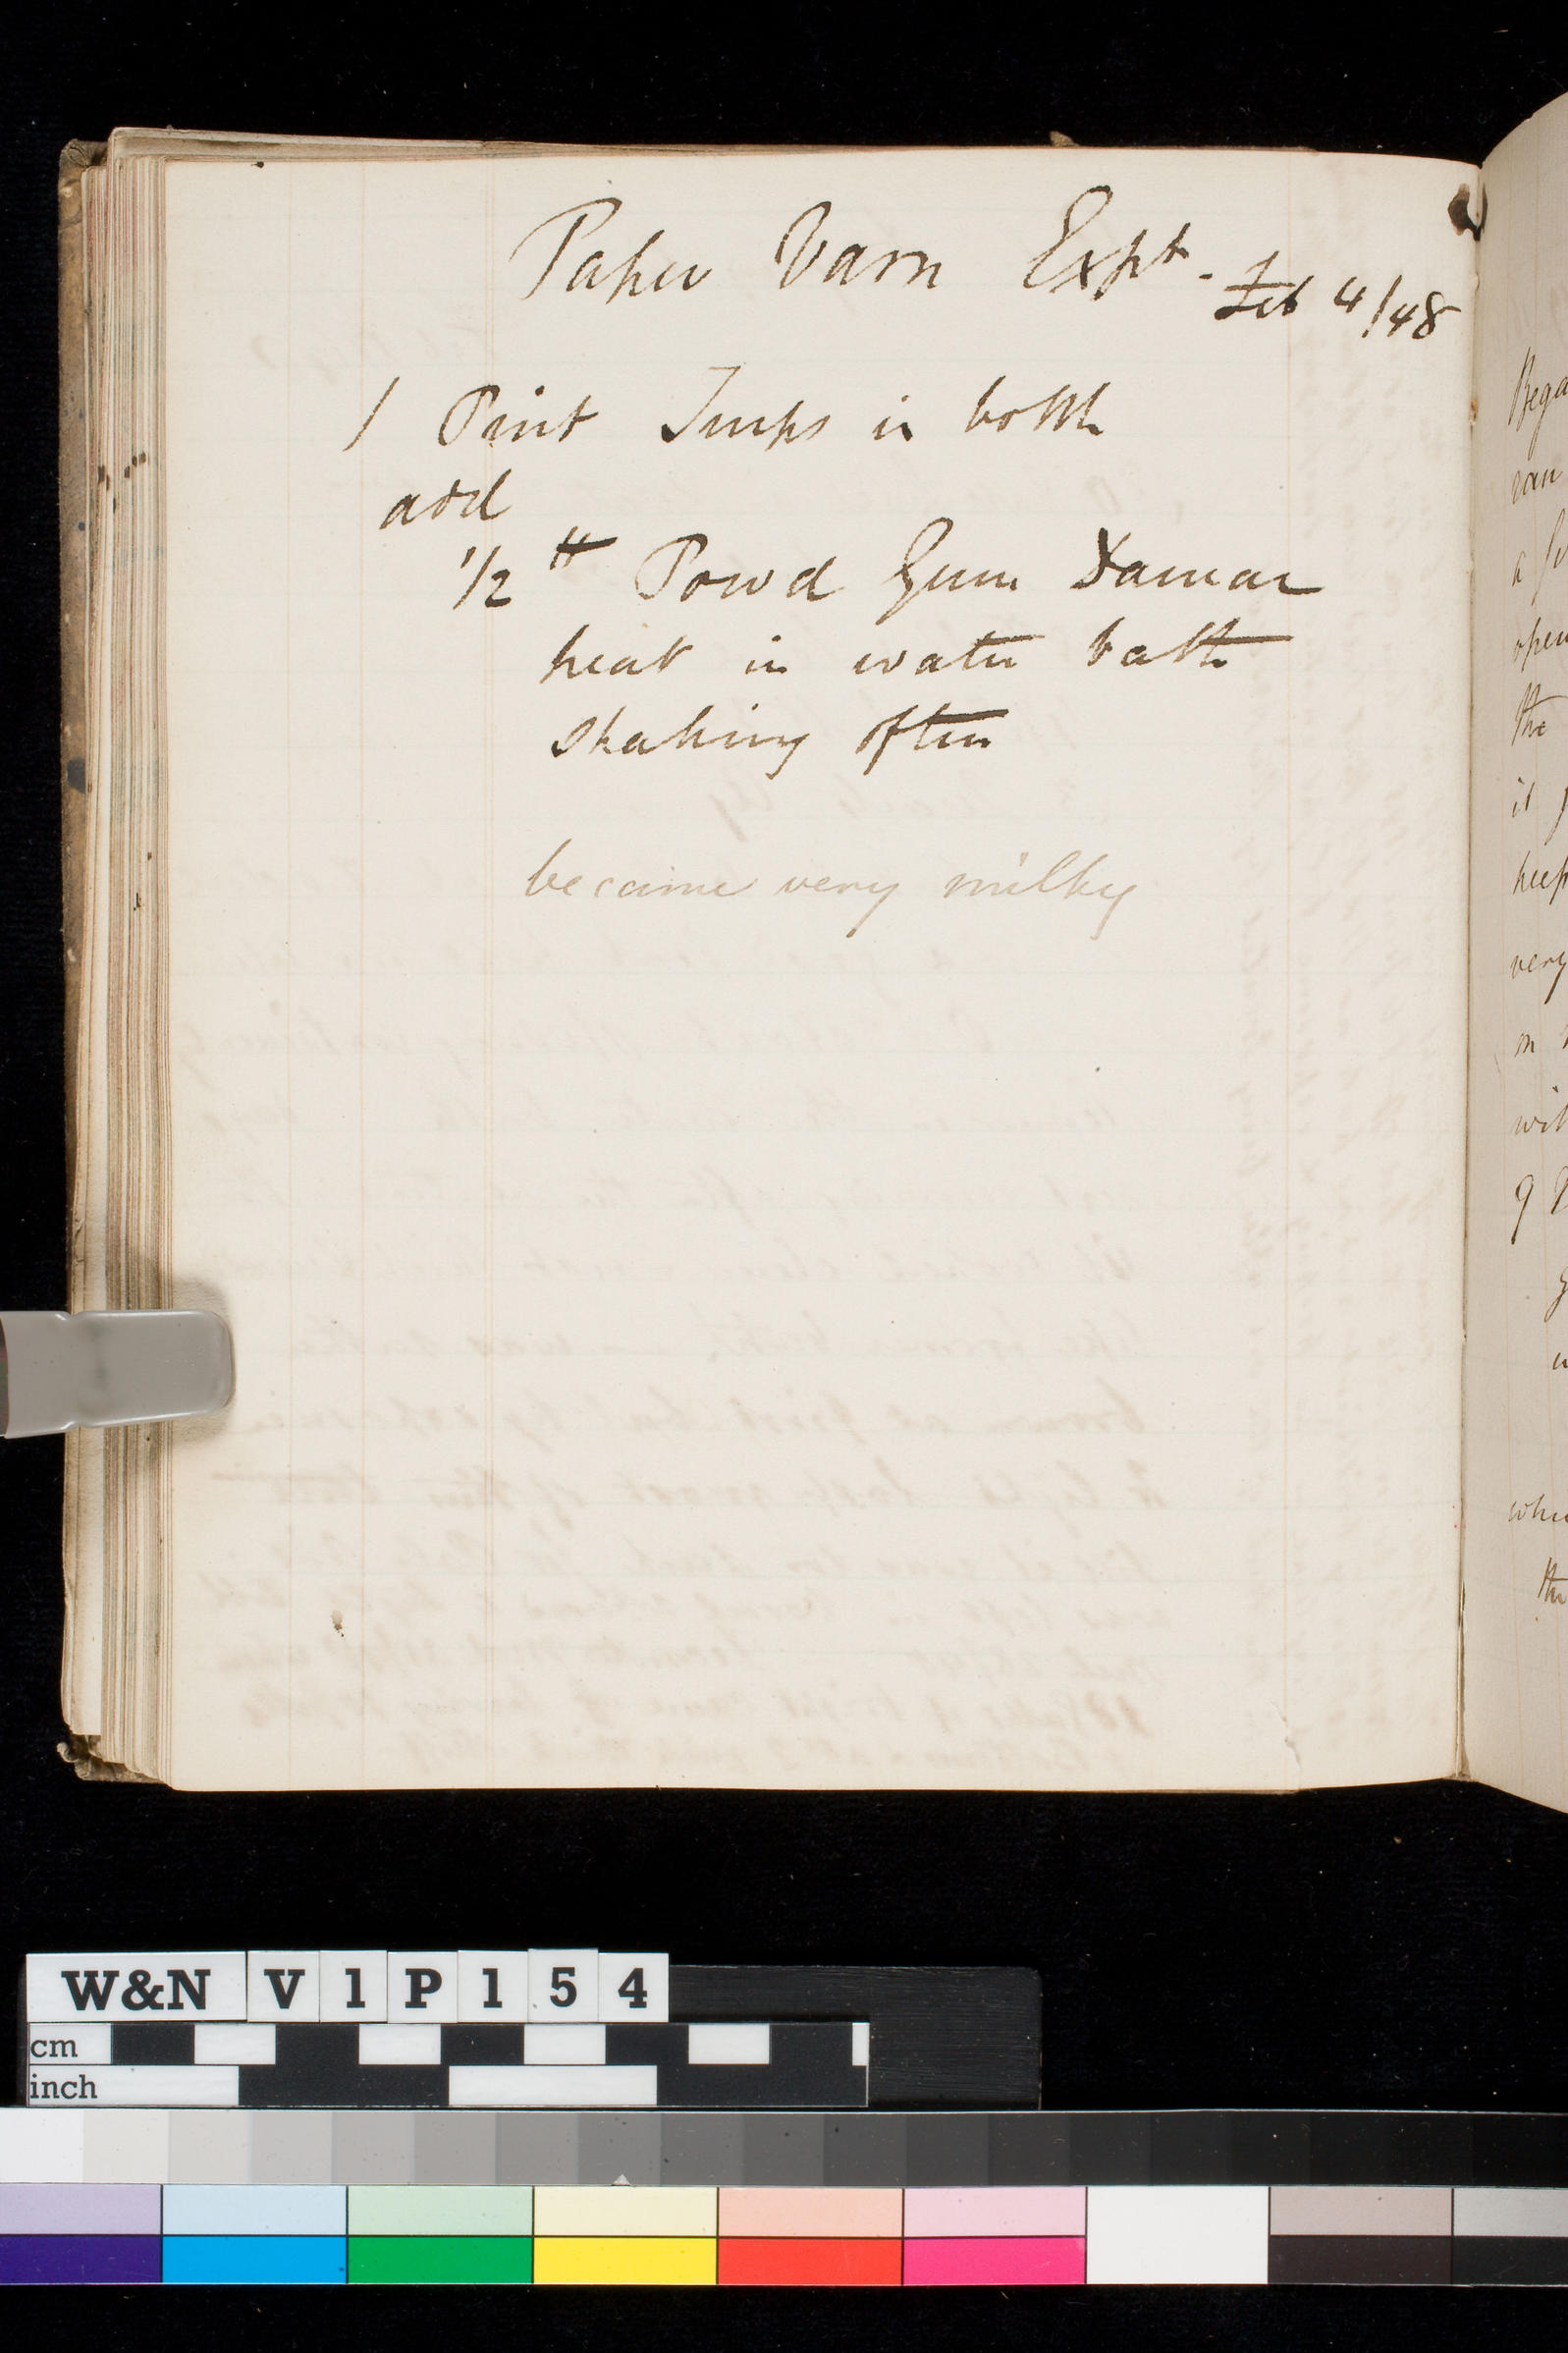 Paper Varn Expt.
Feb 4/48
1 Pint Turps in bottle
add
1/2 lb Powd Gum Damar
heat in water bath
shaking often
became very milky
Bega
ran
a
open
the
it
keep
very
m
wit
9
whe
the
W&N V1P154
cm
inch